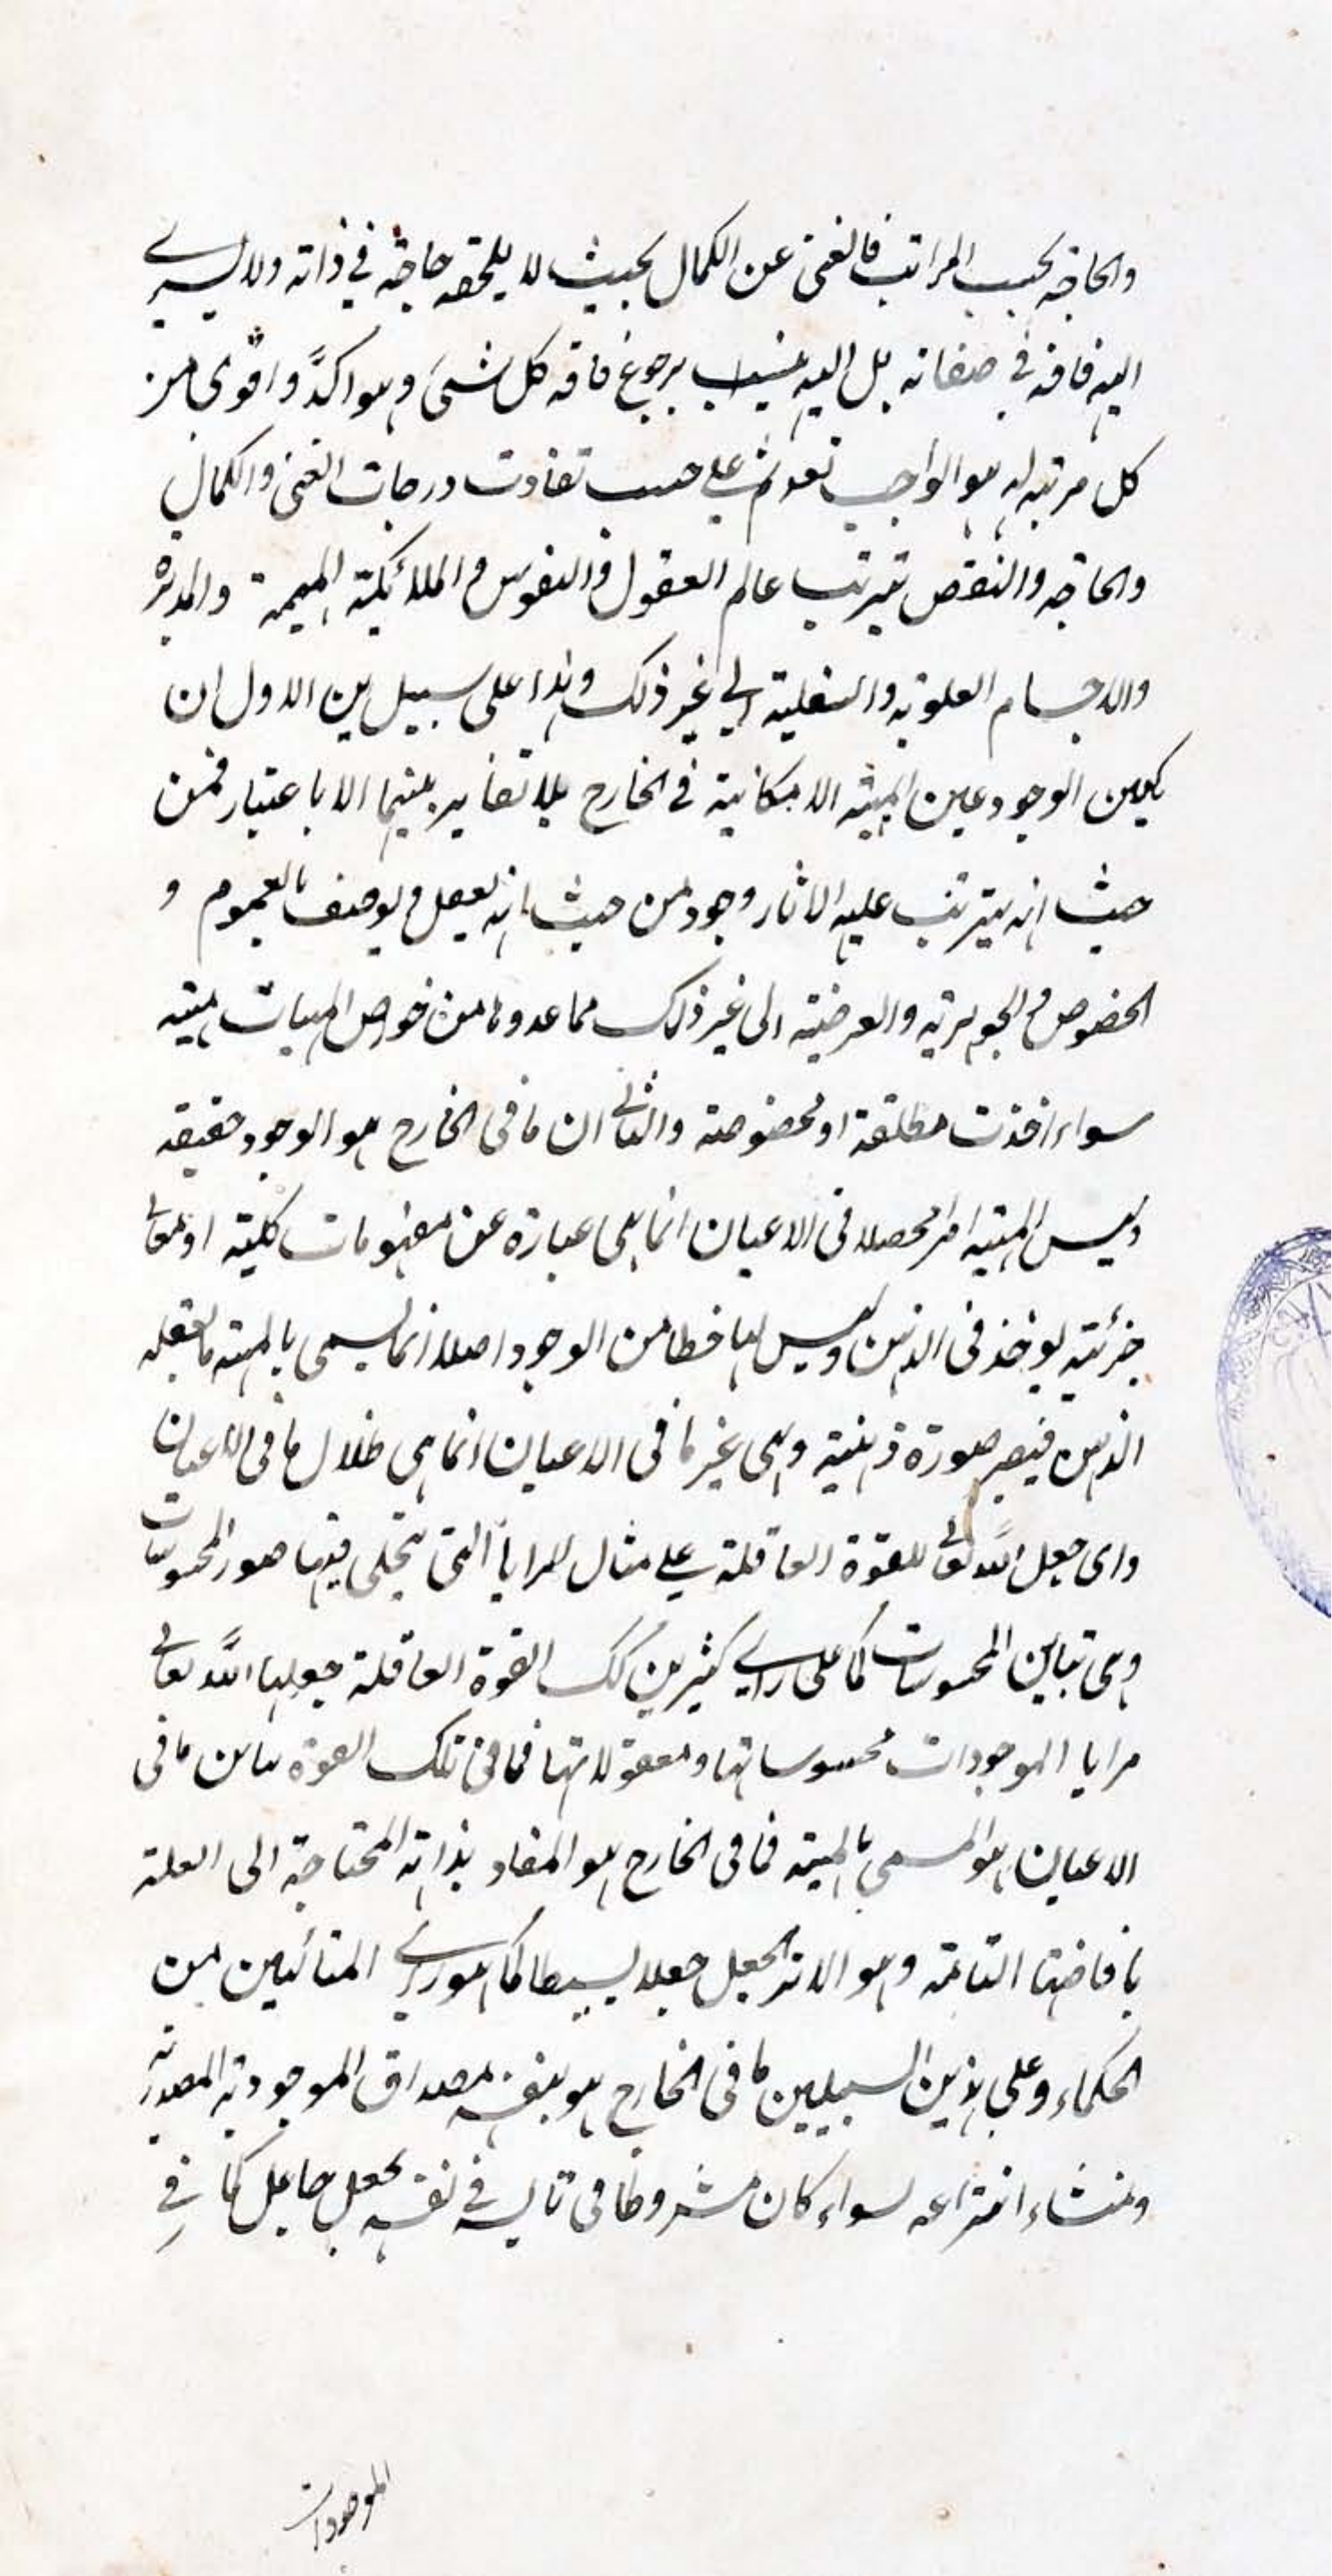 والحاجة بحسب المراتب فالغنى عن الكمال بحيث لا يلحقه حاجة في ذاته ولا يسرى
اليه فاقة في صفاته بل اليه ينسب برجوع فاقه كل شئ وهو اكدّ واقوى من
كل مرتبه له هو الواجب تعه ثم على حسب تفاوت درجات الغنى والكمال
والحاجه والنقص يترتب عالم العقول والنفوس والملائكة المهيمه والمدبرة
والاجسام العلويه والسفلية الى غير ذلك وهذا على سبيلين الاول ان
يكون الوجود عين المهية الامكانية في الخارج بلا تغاير بينهما الا باعتبار فمن
حيث انه يترتب عليه الاثار وجود من حيث انه يعقل ويوصف بالعموم و
الخصوص والجوهرية والعرضية الى غير ذلك مما عدوها من خواص المهيات مهية
سواء اخذت مطلقة او مخصوصة والثاني ان ما في الخارج هو الوجود حقيقه
وليس المهية امرا محصلا في الاعيان انما هي عبارة عن مفهومات كلية او معانى
جزئية يوخذ في الذهن وليس لها حظا من الوجود اصلا انما يسمى بالمهية ما يعقله
الذهن فيصير صورة ذهنية وهي غير ما في الاعيان انما هي ظلال ما في الاعيان
واى جعل الله تعالى للقوة العاقلة على مثال المرايا التي يتجلى فيها صور المحسوسات
وهي تباين المحسوسات كما على راى كثيرين كك القوة العاقلة جعلها الله تعالى
مرايا الموجودات محسوساتها ومعقولاتها فما في تلك القوة يباين ما في
الاعيان هو المسمى بالمهية فما في الخارج هو المفاد بذاته المحتاجة الى العلة
بافاضتها التامة وهو الاثر الجعل جعلا بسيطا كما هو راى المتألهين من
الحكماء وعلى هذين السبيلين ما في الخارج هو بنفسه مصداق الموجودية المصدرية
ومنشاء انتزاعه سواء كان مشروطا في ذلك في نفسه بجعل جاعل كما في
الموجودات